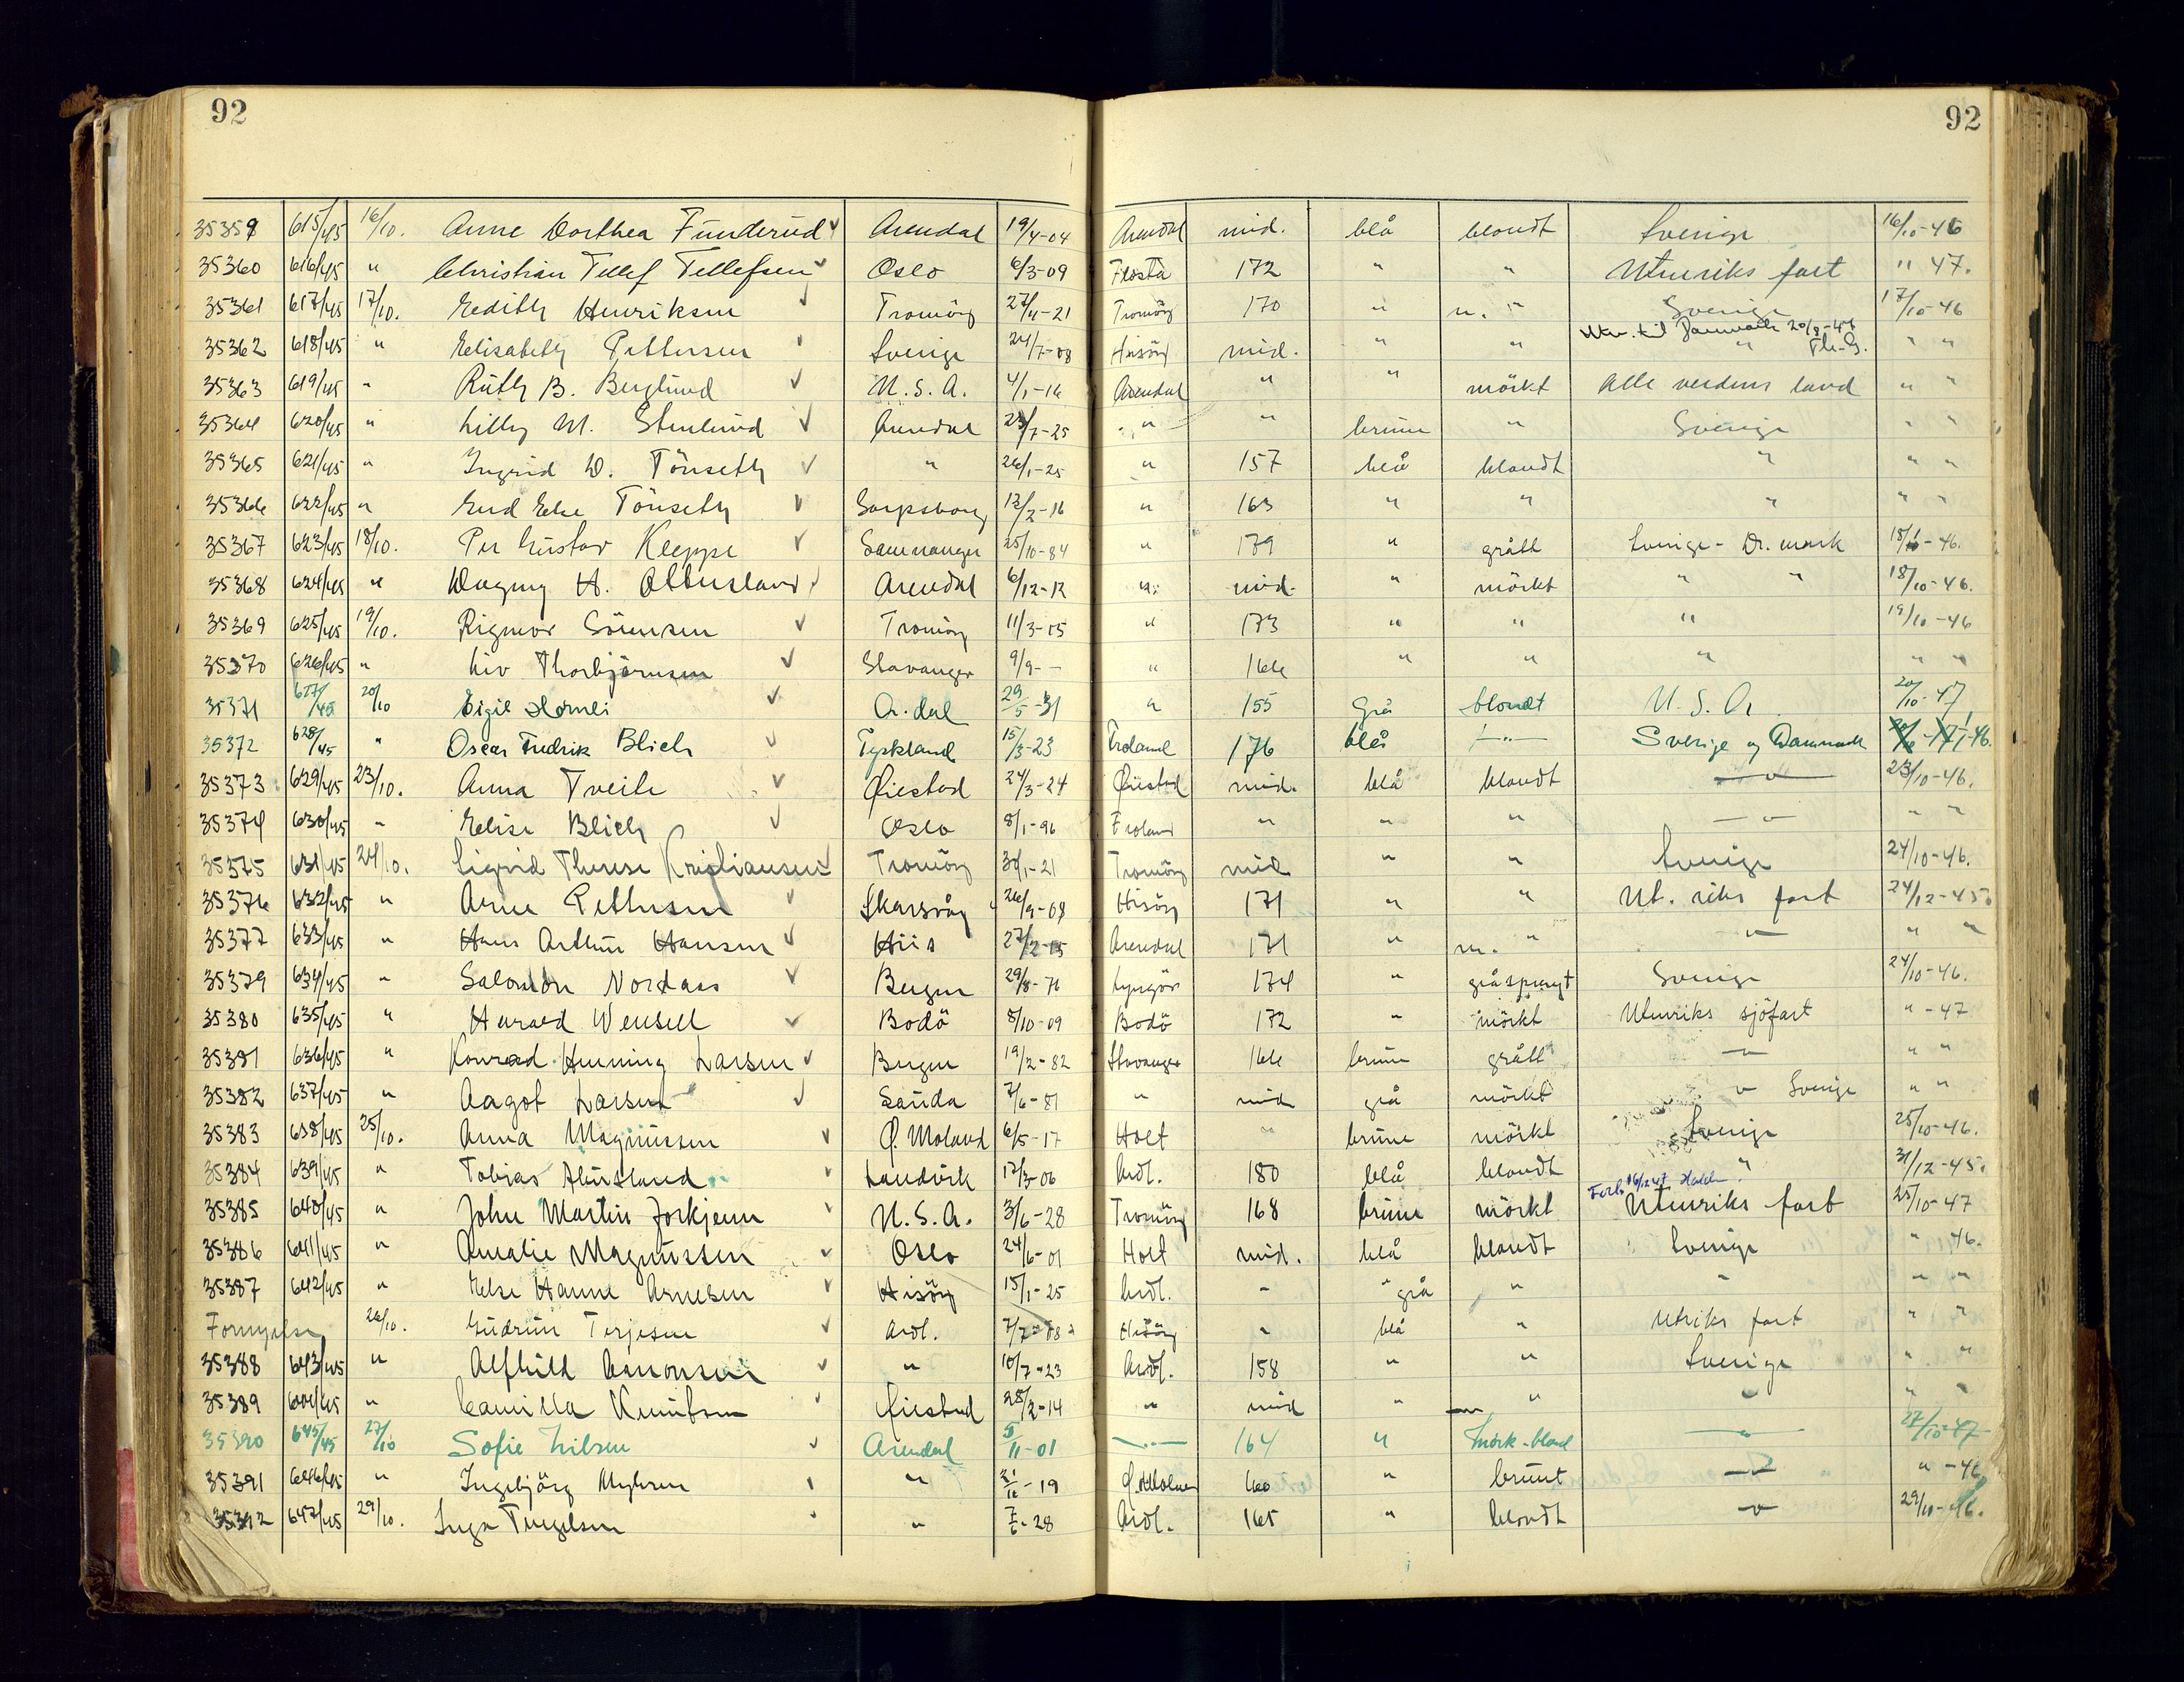 92 92
35359 615/45 16/10. Anne Dorthea Funderud ✓ Arendal 19/4-04 Arendal mid. blå blondt Sverige 16/10-46
35360 616/45 " Christian Tellef Tellefsen ✓ Oslo 6/3-09 Flosta 172 " " Utenriks fart " 47.
35361 617/45 17/10. Edith Henriksen ✓ Tromöy 27/4-21 Tromöy 170 " m. " Sverige 17/10-46
Utv. til Danmark 20/8-46
35362 618/45 " Elisabeth Pettersen ✓ Sverige 24/7-08 Hisöy mid. " " " " "
35363 619/45 " Ruth B. Berglund ✓ U.S.A. 4/1-16 Arendal " " mörkt Alle verdens land " "
35364 620/45 " Lilly M. Stenlund ✓ Arendal 23/7-25 " " brune " Sverige " "
35365 621/45 " Ingrid D. Tönseth ✓ " 26/1-25 " 157 blå blondt " " "
35366 622/45 " Tönseth ✓ Sarpsborg 12/2-16 " 163 " " " " "
35367 623/45 18/10. Per Gustav Kleppe ✓ Samnanger 25/10-84 " 179 " grått Sverige - D.mark 18/1-46.
35368 624/45 " Dagny H. ✓ Arendal 6/12-12 " mid. " mörkt " " 18/10-46.
35369 625/45 19/10. Rigmor Sörensen ✓ Tromöy 11/3-15 " 173 " " " 19/10-46
35370 626/45 " Liv Thorbjörnsen ✓ Stavanger 9/9- - " 166 " " " " "
35371 627/45 20/10 Eigil ✓ A.dal 29/5-31 " 155 Grå blondt U.S.A. 20/10-47
35372 628/45 " Oscar Fredrik Blich ✓ Tyskland 15/3-23 Froland 176 blå —"— Sverige og Danmark -46.
35373 629/45 23/10. Anna Tveite ✓ Øiestad 24/3-24 Øiestad mid. blå blondt —"— 23/10-46.
35374 630/45 " Elise Blich ✓ Oslo 8/1-96 Froland " " " —"— " "
35375 631/45 24/10. Sigrid Therese Kristiansen ✓ Tromöy 30/1-21 Tromöy mid " " Sverige 24/10-46.
35376 632/45 " Arne Pettersen ✓ Skarsvåg 26/9-08 Hisöy 171 " " Ut. riks fart 24/12-45.
35377 633/45 " Hans Arthur Hansen ✓ Hiis 27/2-15 Arendal 171 " m. " —"— " "
35379 634/45 " Salomon Nordaas ✓ Bergen 29/8-76 Lyngör 174 " gråsprengt Sverige 24/10-46.
35380 635/45 " Harald Wensell ✓ Bodö 8/10-09 Bodö 172 " mörkt Utenriks sjöfart " -47
35381 636/45 " Konrad Henning Larsen ✓ Bergen 19/2-82 Stavanger 166 brune grått —"— " "
35382 637/45 " Aagot Larsen ✓ Sauda 7/6-81 " mid grå mörkt " Sverige " "
35383 638/45 25/10. Anna Magnussen ✓ Ø. Moland 6/5-17 Holt " brune mörkt Sverige 25/10-46.
35384 639/45 " Tobias ✓ Landvik 17/3-06 Ardl. 180 blå blondt " 31/12-45.
Forl. 16/12 47 Halden
35385 640/45 " John Martin Torkjenn ✓ U.S.A. 3/6-28 Tromöy 168 brune mörkt Utenriks fart 25/10-47
35386 641/45 " Amalie Magnussen ✓ Oslo 24/6-01 Holt mid. blå blondt Sverige " 46.
35387 642/45 " Else Hanne Arnesen ✓ Hisöy 15/1-25 Ardl. " grå " " " "
Fornyelse 26/10. Gudrun Terjesen ✓ Ardl. 7/7-08 Hisöy " blå " Utriks fart " "
35388 643/45 " Alfhild Aanonsen ✓ " 10/7-23 Ardl. 158 " " Sverige " "
35389 644/45 " Camilla Knutsen ✓ Øiestad 28/2-14 " mid " " " " "
35390 645/45 27/10 Sofie Nilsen ✓ Arendal 5/11-01 —"— 164 " mörk-blond —"— 27/10-47
35391 646/45 " Ingebjörg Myhren " -19 160 " brunt —"— " -46
35392 647/45 29/10. Inga " 7/6-28 Ardl. 165 " blondt —"— 29/10-46.